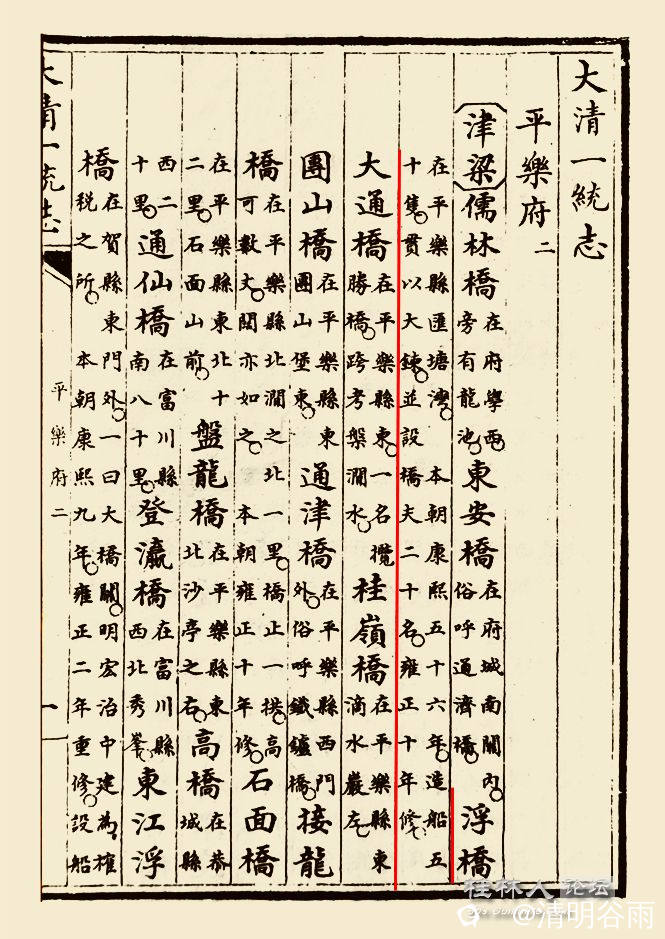 大清一統志
平樂府二
津梁 儒林橋 在府學西旁有龍池 東安橋 在府城南關內俗呼通濟橋 浮橋
在平樂縣匯塘灣 本朝康熙五十六年造船五十隻貫以大鍊並設橋夫二十名雍正十年修
大通橋 在平樂縣東一名攬勝橋跨考槃澗水 桂嶺橋 在平樂縣東滴水巖左
團山橋 在平樂縣東團山堡東 通津橋 在平樂縣西門外俗呼鐵鑪橋 接龍
橋 在平樂縣北澗之北一里橋止一拱高可數丈闊亦如之 本朝雍正十年修 石面橋
在平樂縣東北十二里石面山前 盤龍橋 在平樂縣東北沙亭之右 高橋 在恭城縣
西二十里 通仙橋 在富川縣南八十里 登瀛橋 在富川縣西北秀峯 東江浮
橋 在賀縣東門外一曰大橋關明宏治中建為榷稅之所 本朝康熙九年雍正二年重修設船
大清一統志
平樂府二
一
桂林人论坛
@清明谷雨